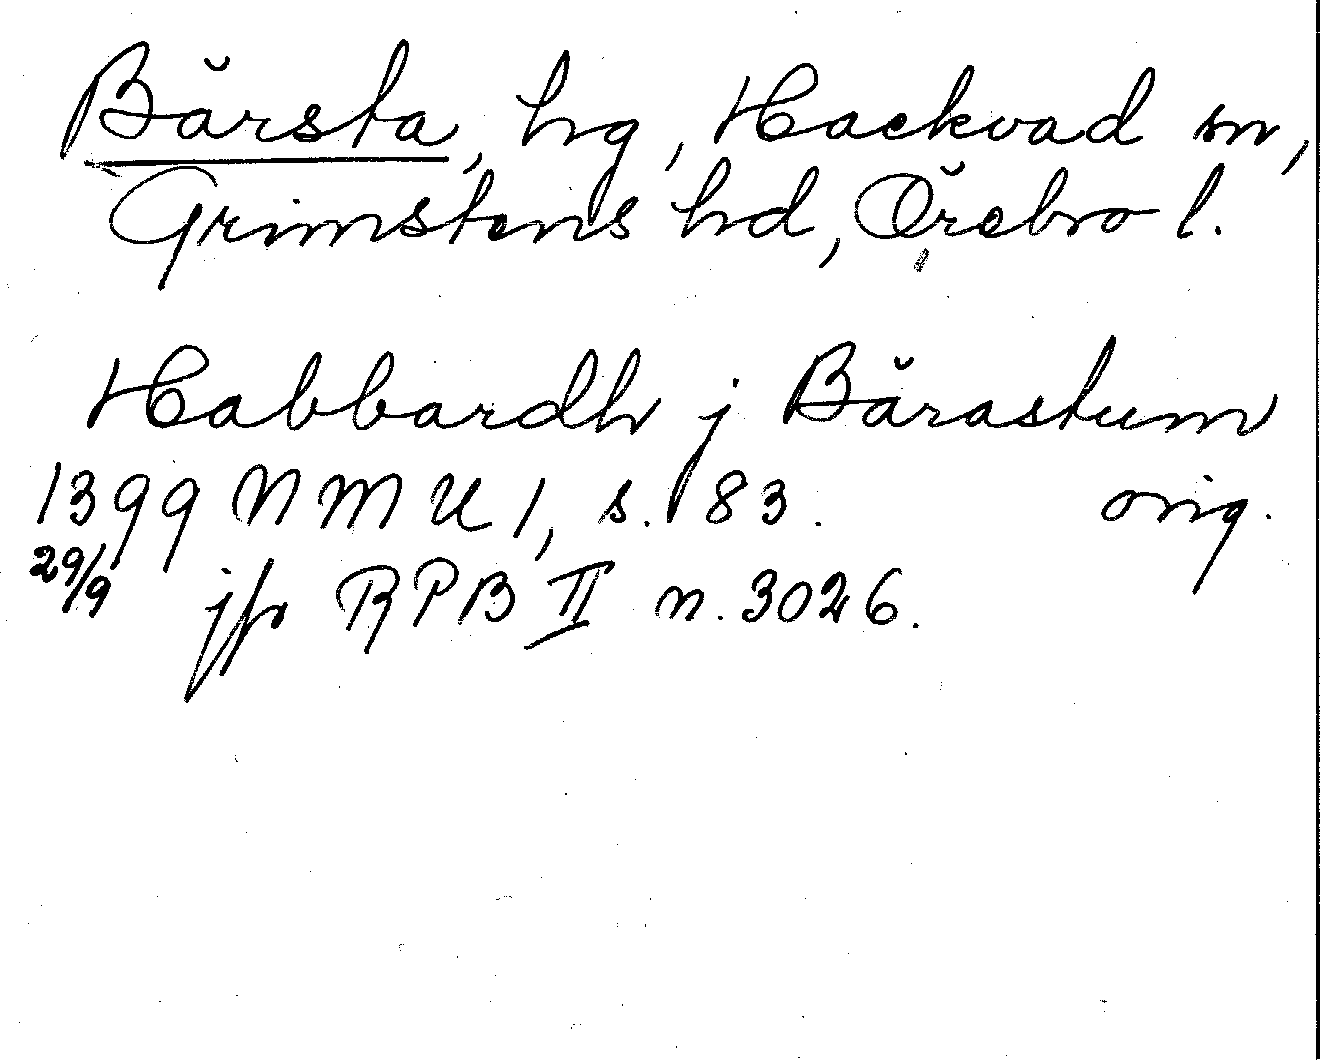 Bärsta, hg, Hackvad sn,
Grimstens hd, Örebro l.
Habbardh j Bärastum
1399 NMU 1, s. 83. orig.
29/9 jfr RPB II n. 3026.